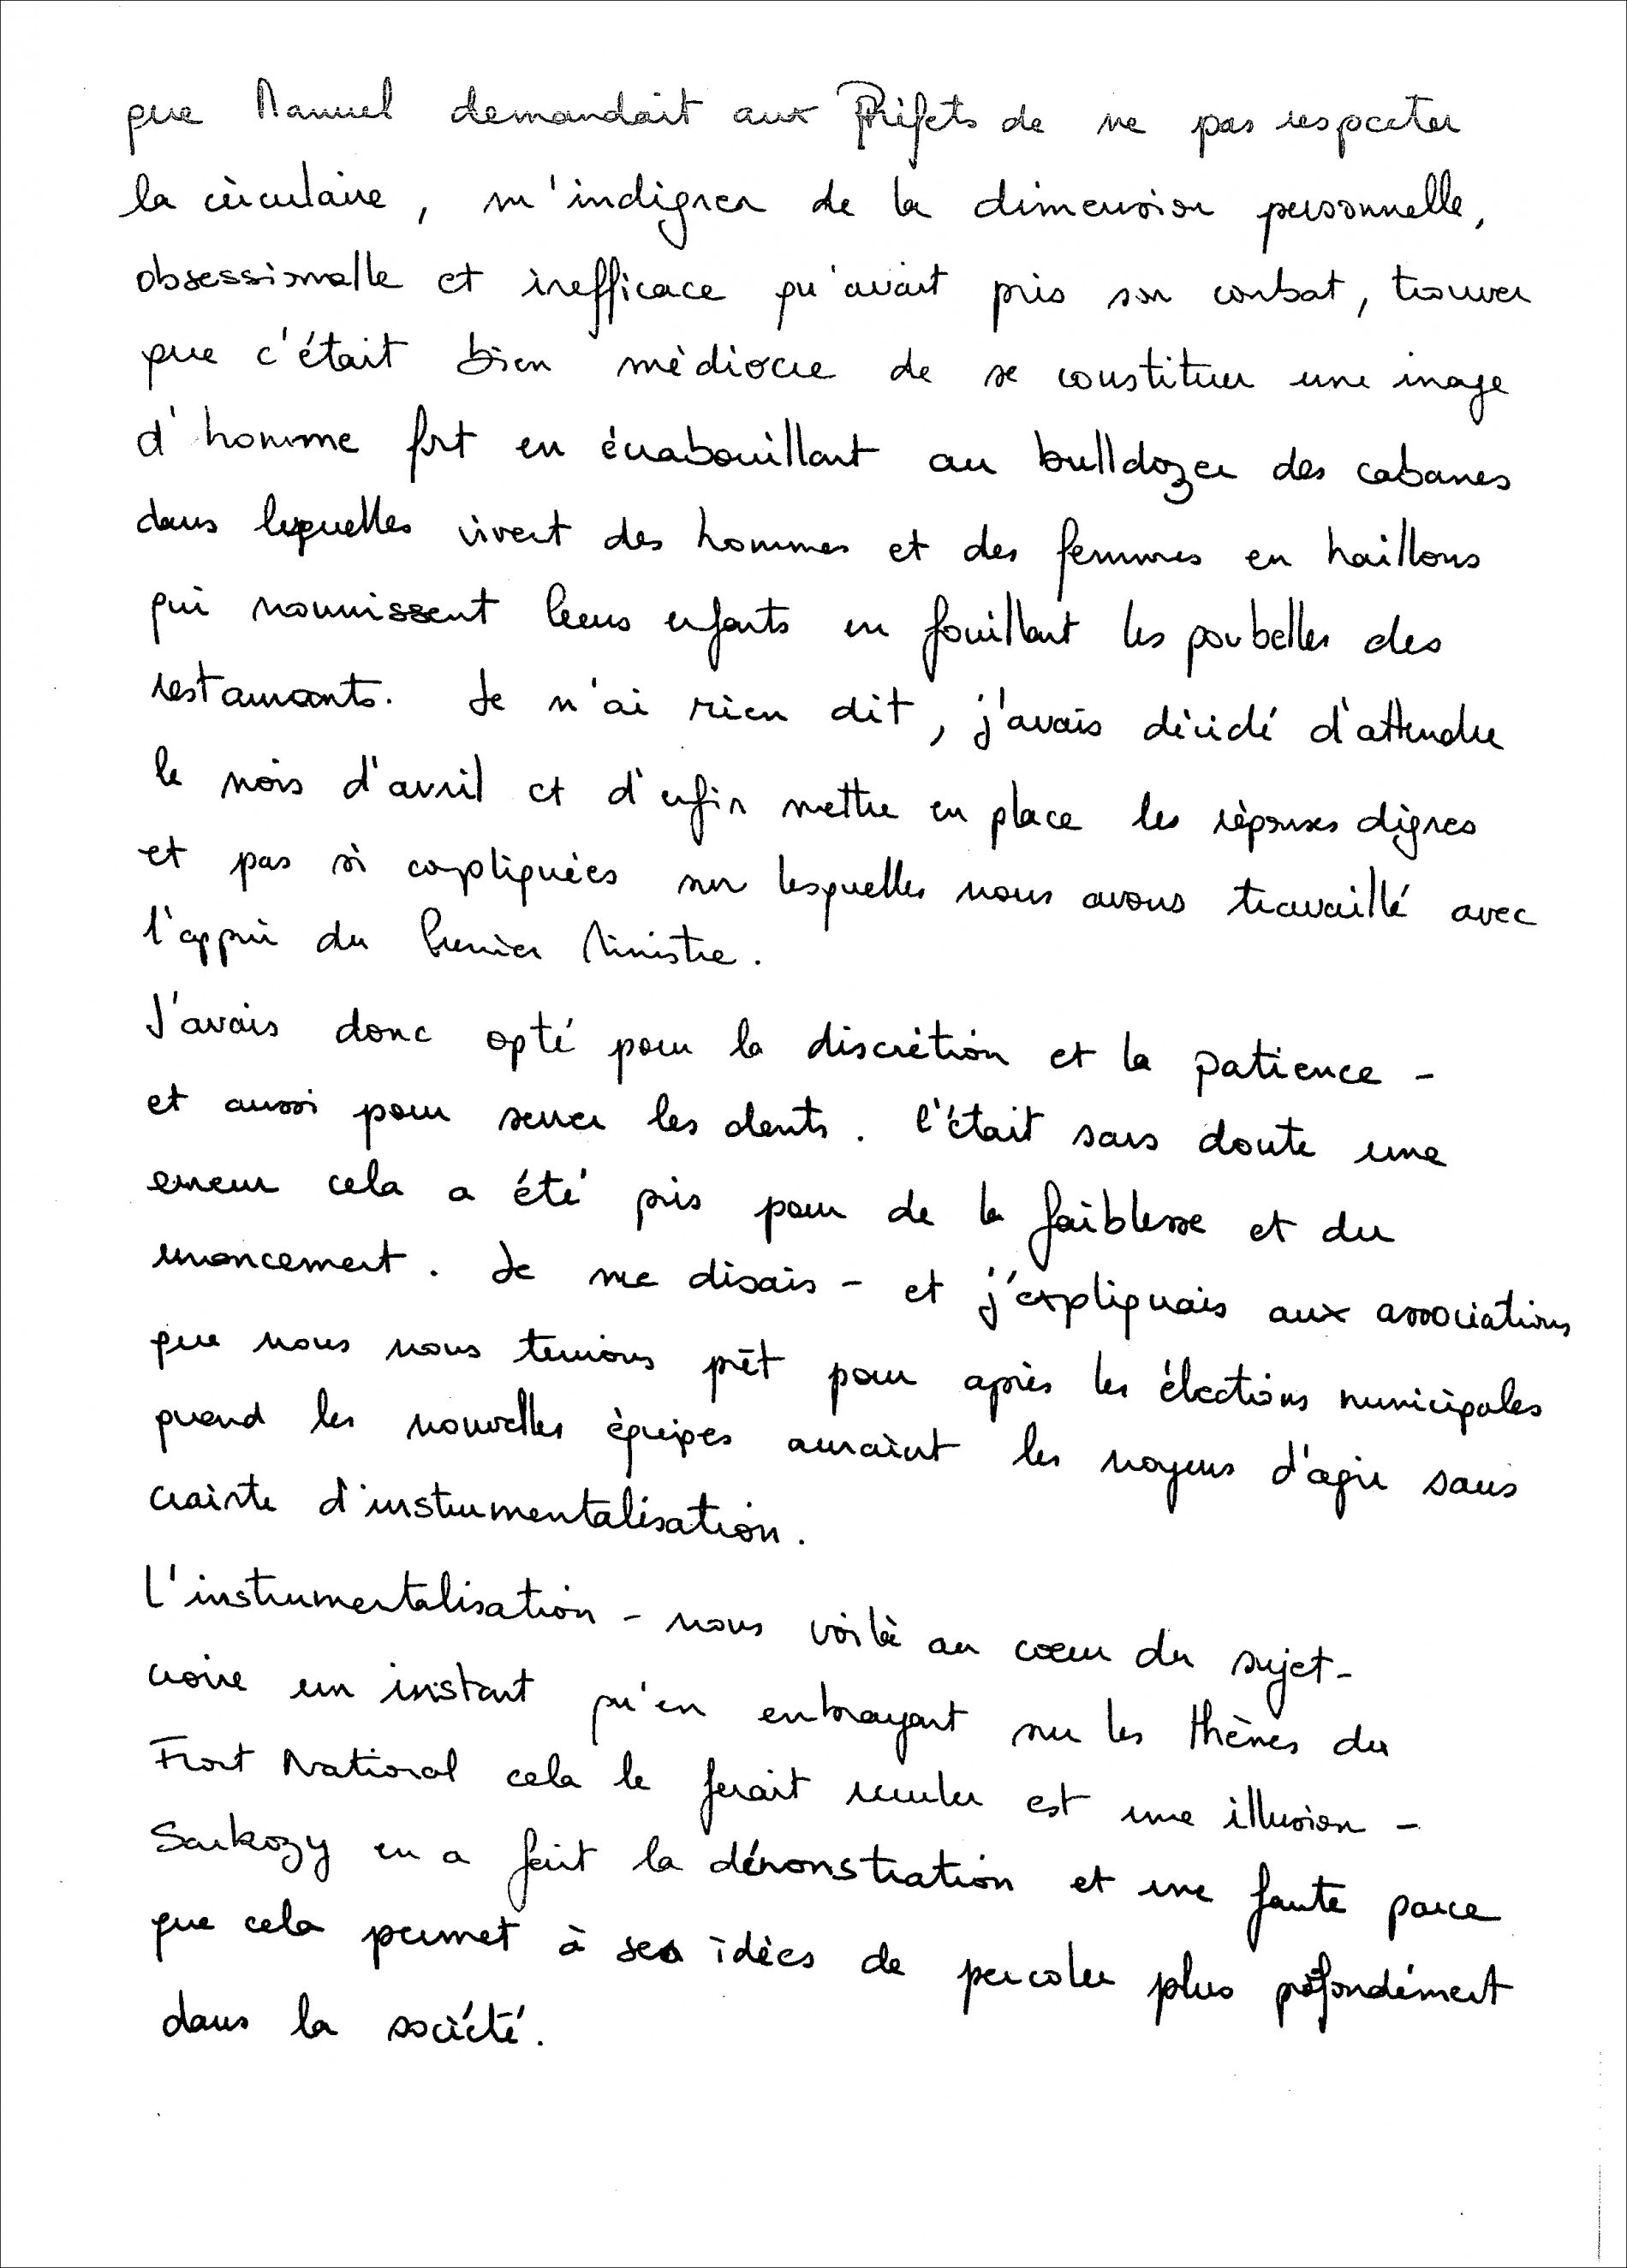 que Manuel demandait aux Préfets de ne pas respecter
la circulaire, m'indigner de la dimension personnelle,
obsessionnelle et inefficace qu'avait pris son combat, trouver
que c'était bien médiocre de se constituer une image
d'homme fort en écrabouillant au bulldozer des cabanes
dans lesquelles vivent des hommes et des femmes en haillons
qui nourrissent leurs enfants en fouillant les poubelles des
restaurants. Je n'ai rien dit, j'avais décidé d'attendre
le mois d'avril et d'enfin mettre en place les réponses dignes
et pas si compliquées sur lesquelles nous avons travaillé avec
l'appui du Premier Ministre.
J'avais donc opté pour la discrétion et la patience -
et aussi pour serrer les dents. C'était sans doute une
erreur cela a été pris pour de la faiblesse et du
renoncement. Je me disais - et j'expliquais aux associations
que nous nous tenions prêt pour après les élections municipales
quand les nouvelles équipes auraient les moyens d'agir sans
crainte d'instrumentalisation.
L'instrumentalisation - nous voilà au cœur du sujet -
croire un instant qu'en embrayant sur les thèmes du
Front National cela le ferait reculer est une illusion -
Sarkozy en a fait la démonstration et une faute parce
que cela permet à ses idées de percoler plus profondément
dans la société.